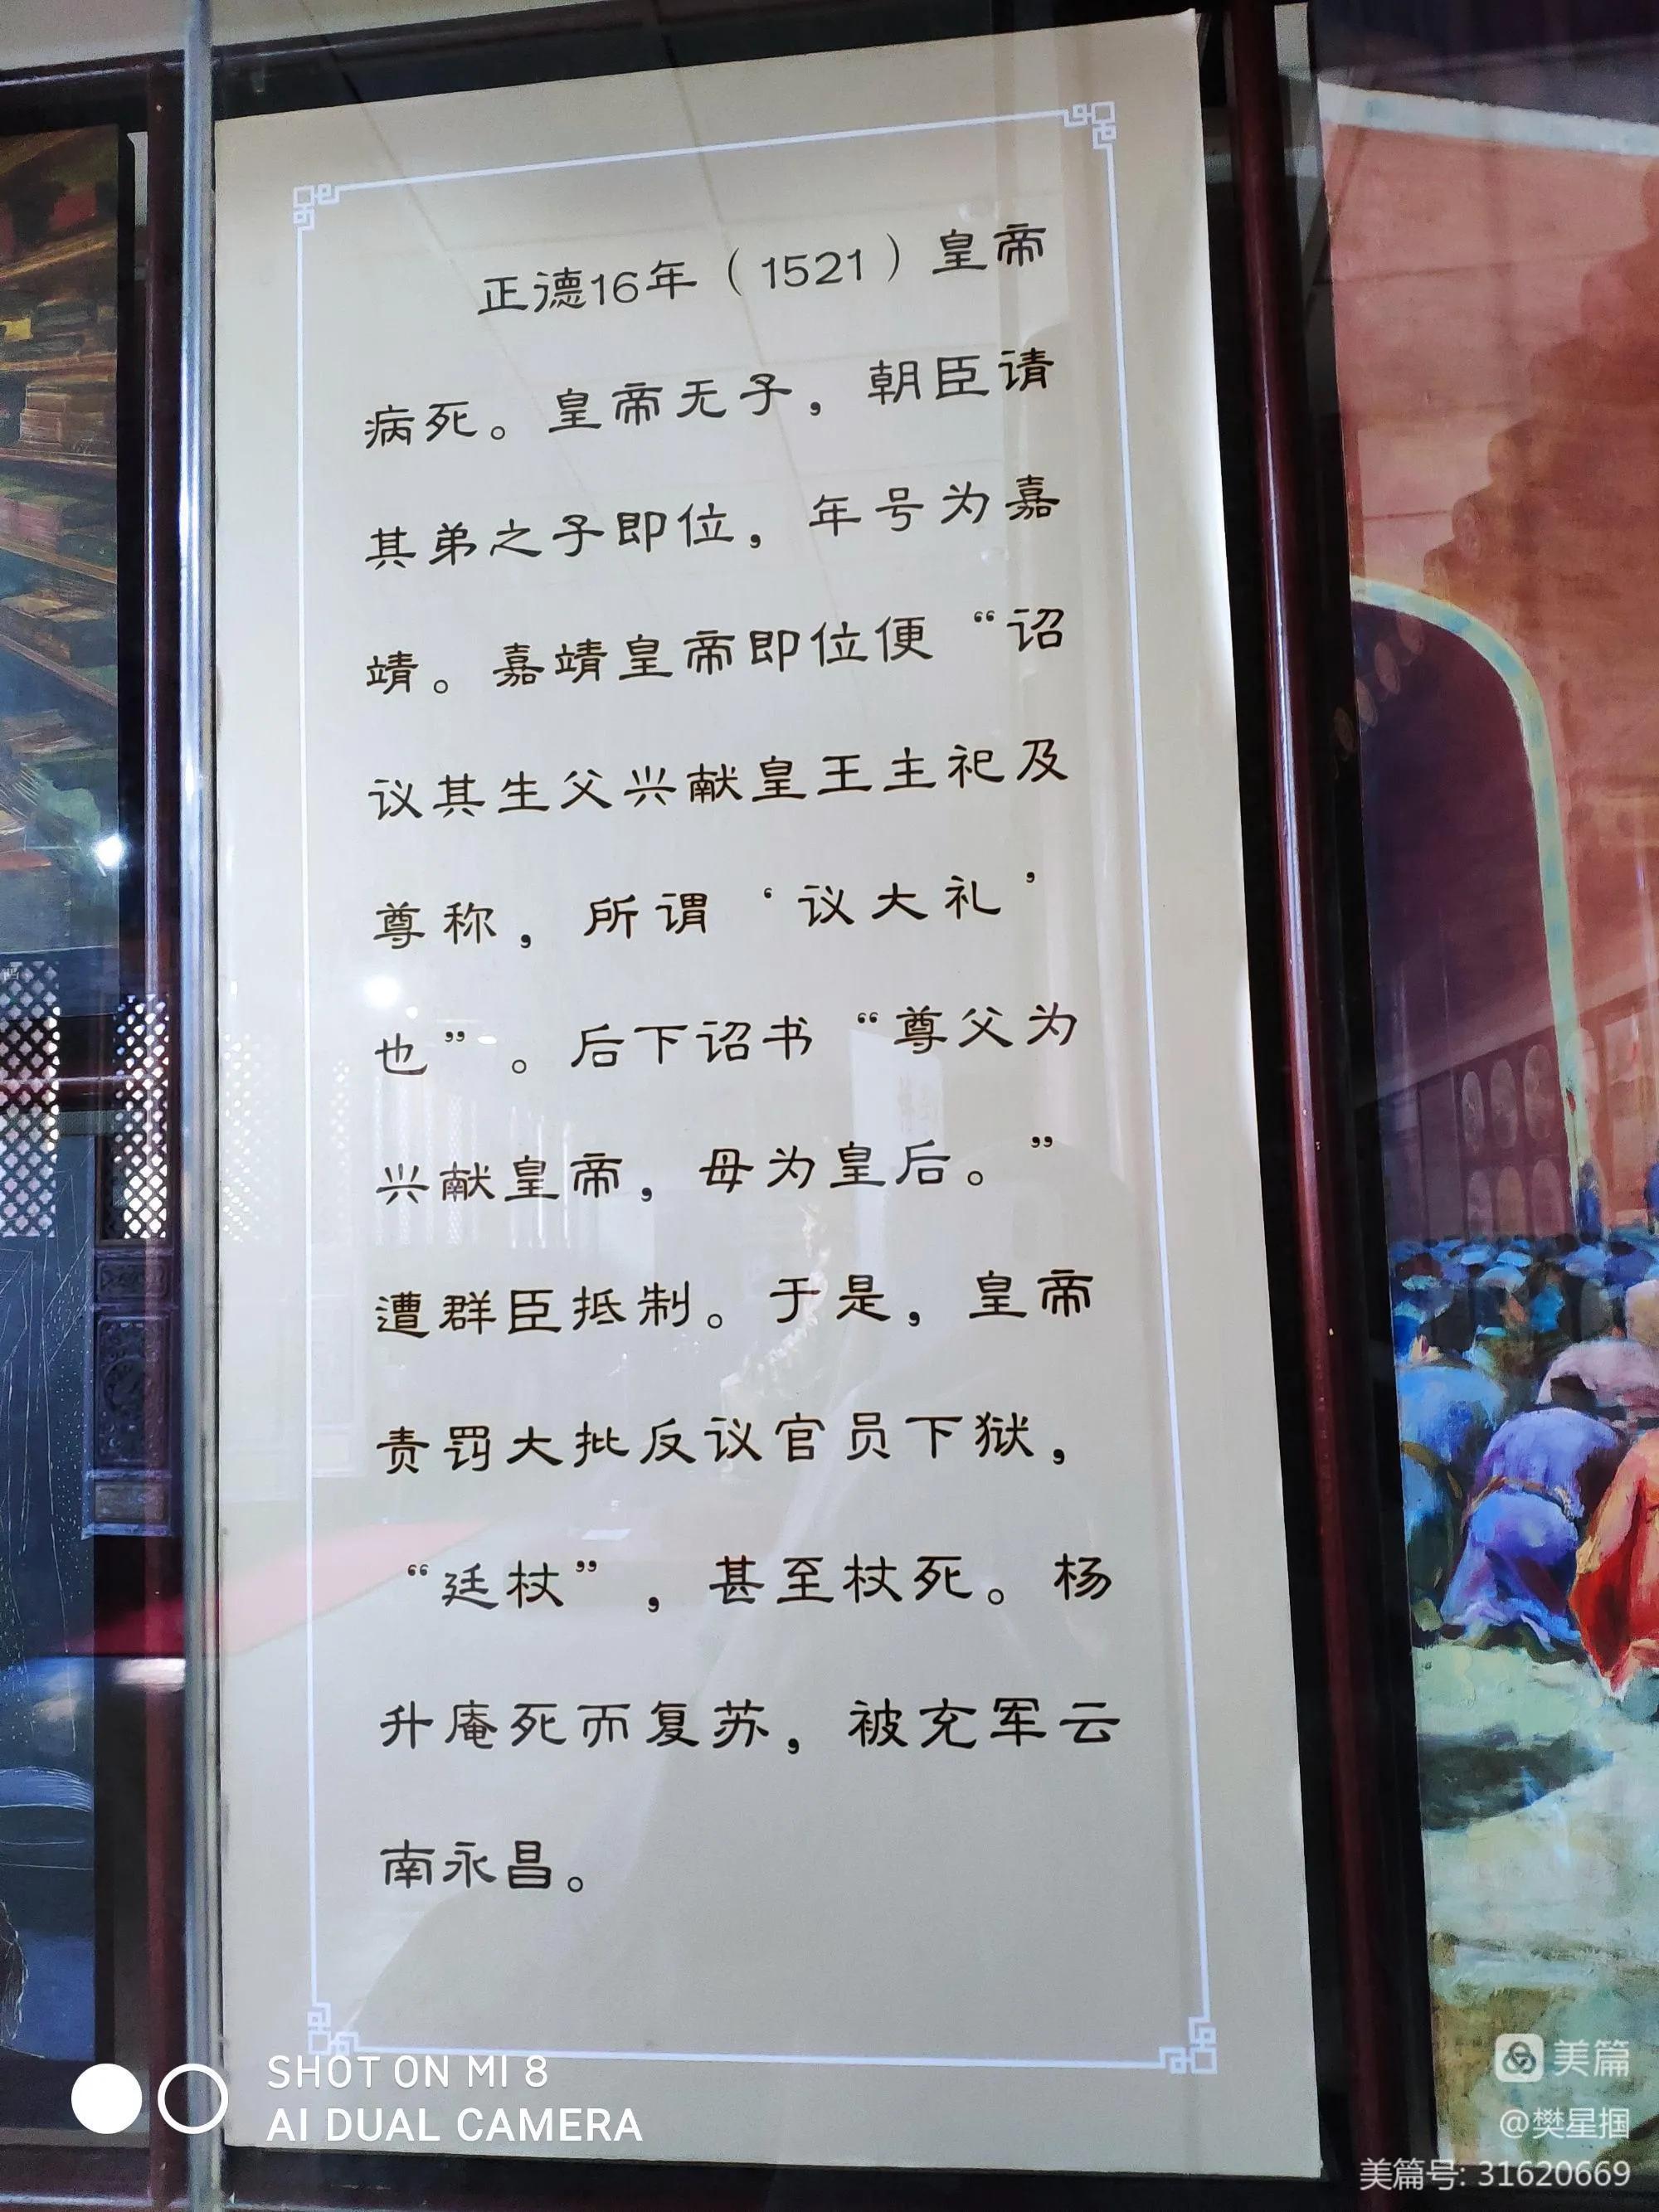 正德16年（1521）皇帝
病死。皇帝无子，朝臣请
其弟之子即位，年号为嘉
靖。嘉靖皇帝即位便“诏
议其生父兴献皇王主祀及
尊称，所谓‘议大礼’
也”。后下诏书“尊父为
兴献皇帝，母为皇后。”
遭群臣抵制。于是，皇帝
责罚大批反议官员下狱，
“廷杖”，甚至杖死。杨
升庵死而复苏，被充军云
南永昌。
SHOT ON MI 8
AI DUAL CAMERA
美篇
@樊星掴
美篇号: 31620669